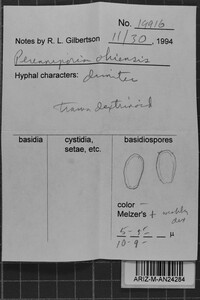 No. 19916
Notes by R. L. Gilbertson 11/30, 1994
Perenniporia ohiensis
Hyphal characters: dimitic
trama dextrinoid
basidia
cystidia, setae, etc.
basidiospores
color –
Melzer's + weakly dex
10 - 9 - μ
ARIZ-M-AN24284